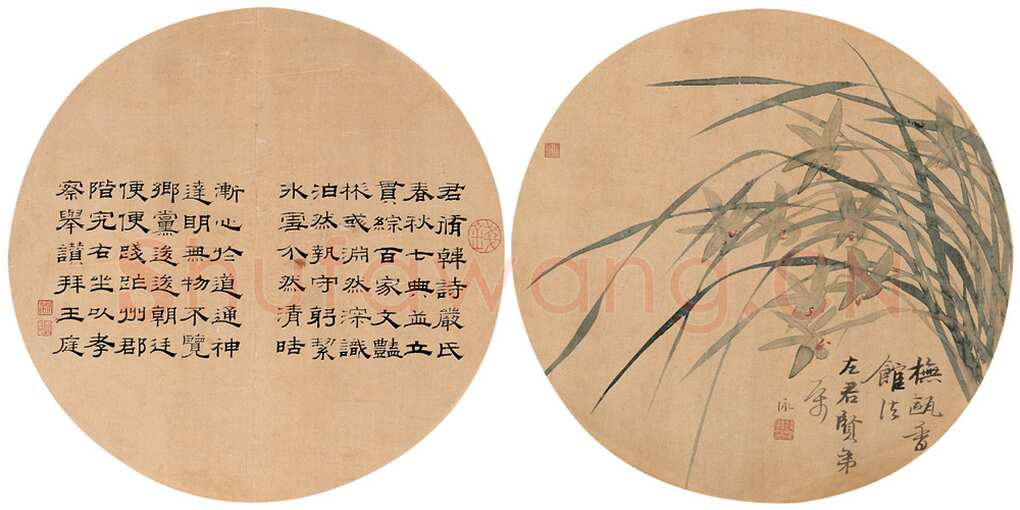 君脩韓詩嚴氏
春秋七典並立
貫綜百家文豔
彧淵然深識
泊然執守躬絜
冰雪介然清
漸心於道通神
達明無物不覽
鄉黨逡逡朝廷
便便踐州郡
階究右坐以孝
察舉讚拜王庭
橅甌香
館法
左君賢弟
屬
Shufawang.CN